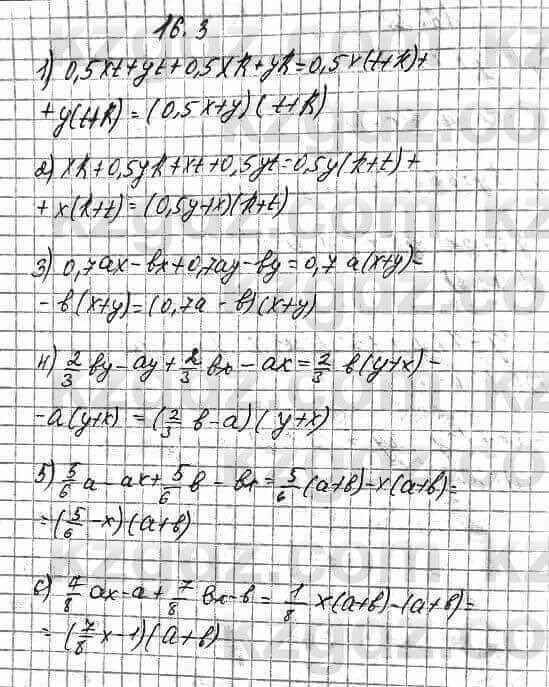 16.3
1) 0,5xt+yt+0,5xk+yk=0,5x(t+k)+
+y(t+k)=(0,5x+y)(t+k)
2) xk+0,5yk+xt+0,5yt=0,5y(k+t)+
+x(k+t)=(0,5y+x)(k+t)
3) 0,7ax-bx+0,7ay-by=0,7 a(x+y)-
-b(x+y)=(0,7a-b)(x+y)
4) 2/3 by-ay+2/3 bx-ax=2/3 b(y+x)-
-a(y+x)=(2/3 b-a)(y+x)
5) 5/6 a-ax+5/6 b-bx=5/6 (a+b)-x(a+b)=
=(5/6-x)(a+b)
6) 7/8 ax-a+7/8 bx-b=1/8 x(a+b)-(a+b)=
=(7/8 x-1)(a+b)
kzgdz.com